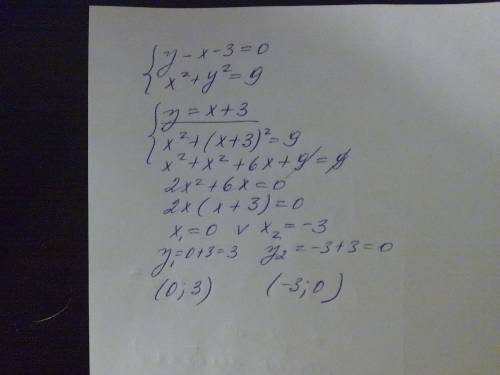 { y - x - 3 = 0
x² + y² = 9
{ y = x + 3
x² + (x + 3)² = 9
x² + x² + 6x + 9 = 9
2x² + 6x = 0
2x (x + 3) = 0
x₁ = 0 ∨ x₂ = -3
y₁ = 0 + 3 = 3 y₂ = -3 + 3 = 0
(0; 3) (-3; 0)